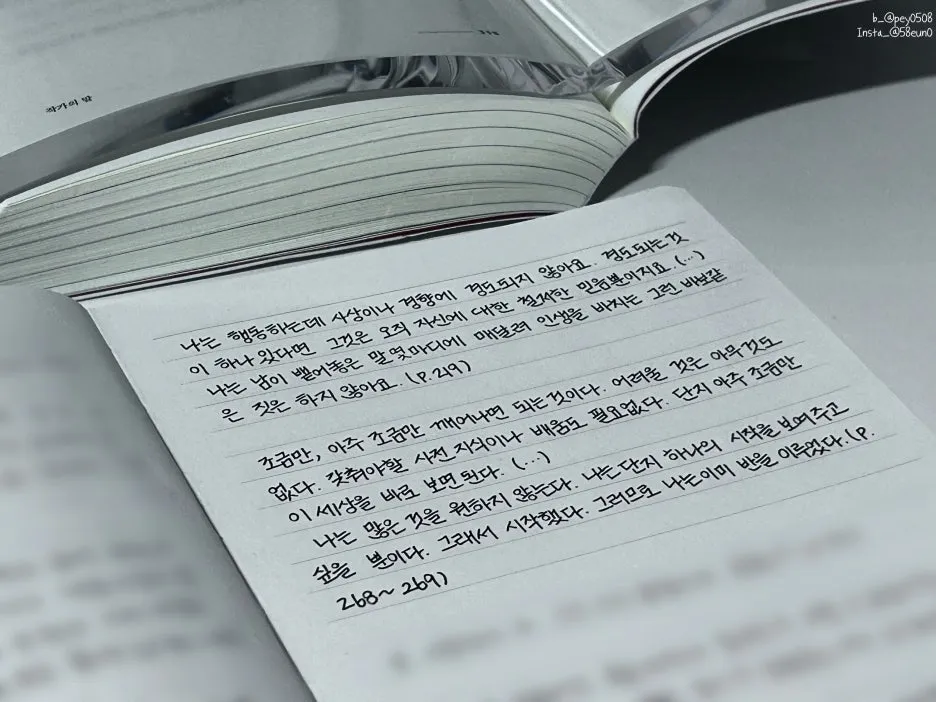 b_@pey0508
Insta_@58eun0
작가의 말
나는 행동하는데 사상이나 경향에 경도되지 않아요. 경도되는것
이 하나 있다면 그것은 오직 자신에 대한 철저한 믿음뿐이지요.(...)
나는 남이 뱉어놓은 말 몇마디에 매달려 인생을 바치는 그런 바보같
은 짓은 하지 않아요. (P.219)
조금만, 아주 조금만 깨어나면 되는것이다. 어려울 것은 아무것도
없다. 갖춰야할 사전지식이나 배움도 필요없다. 단지 아주 조금만
이 세상을 바로 보면 된다. (...)
나는 많은 것을 원하지 않는다. 나는 단지 하나의 시작을 보여주고
싶을 뿐이다. 그래서 시작했다. 그러므로 나는 이미 반을 이루었다.(P.
268~ 269)